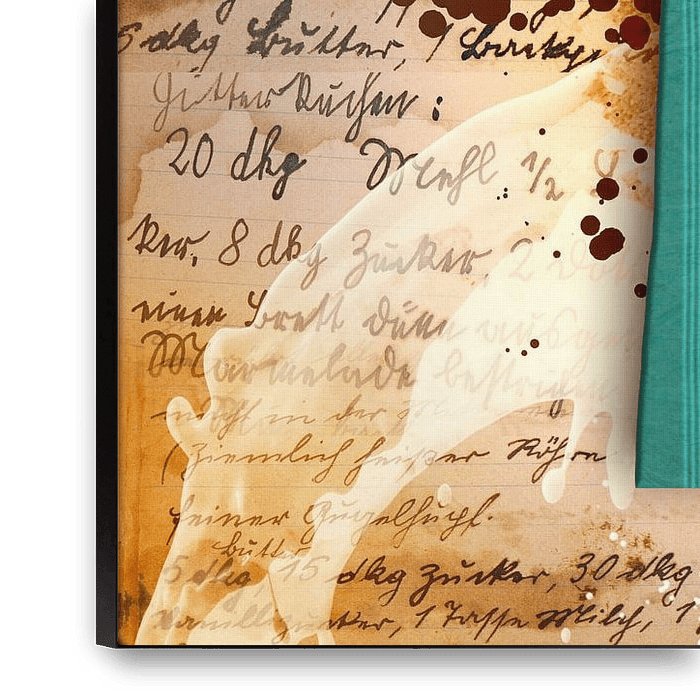 5 dkg Butter, 1 Backp
Gitterkuchen:
20 dkg Mehl 1/2
ker, 8 dkg Zucker, 2 Dot
einen Brett dünn ausge
Marmelade bestrichen
nicht in der
(Ziemlich heißer Röhre
feiner Gugelhupf.
Butter
5 dkg, 15 dkg Zucker, 30 dkg
Vanillzucker, 1 Tasse Milch, 1